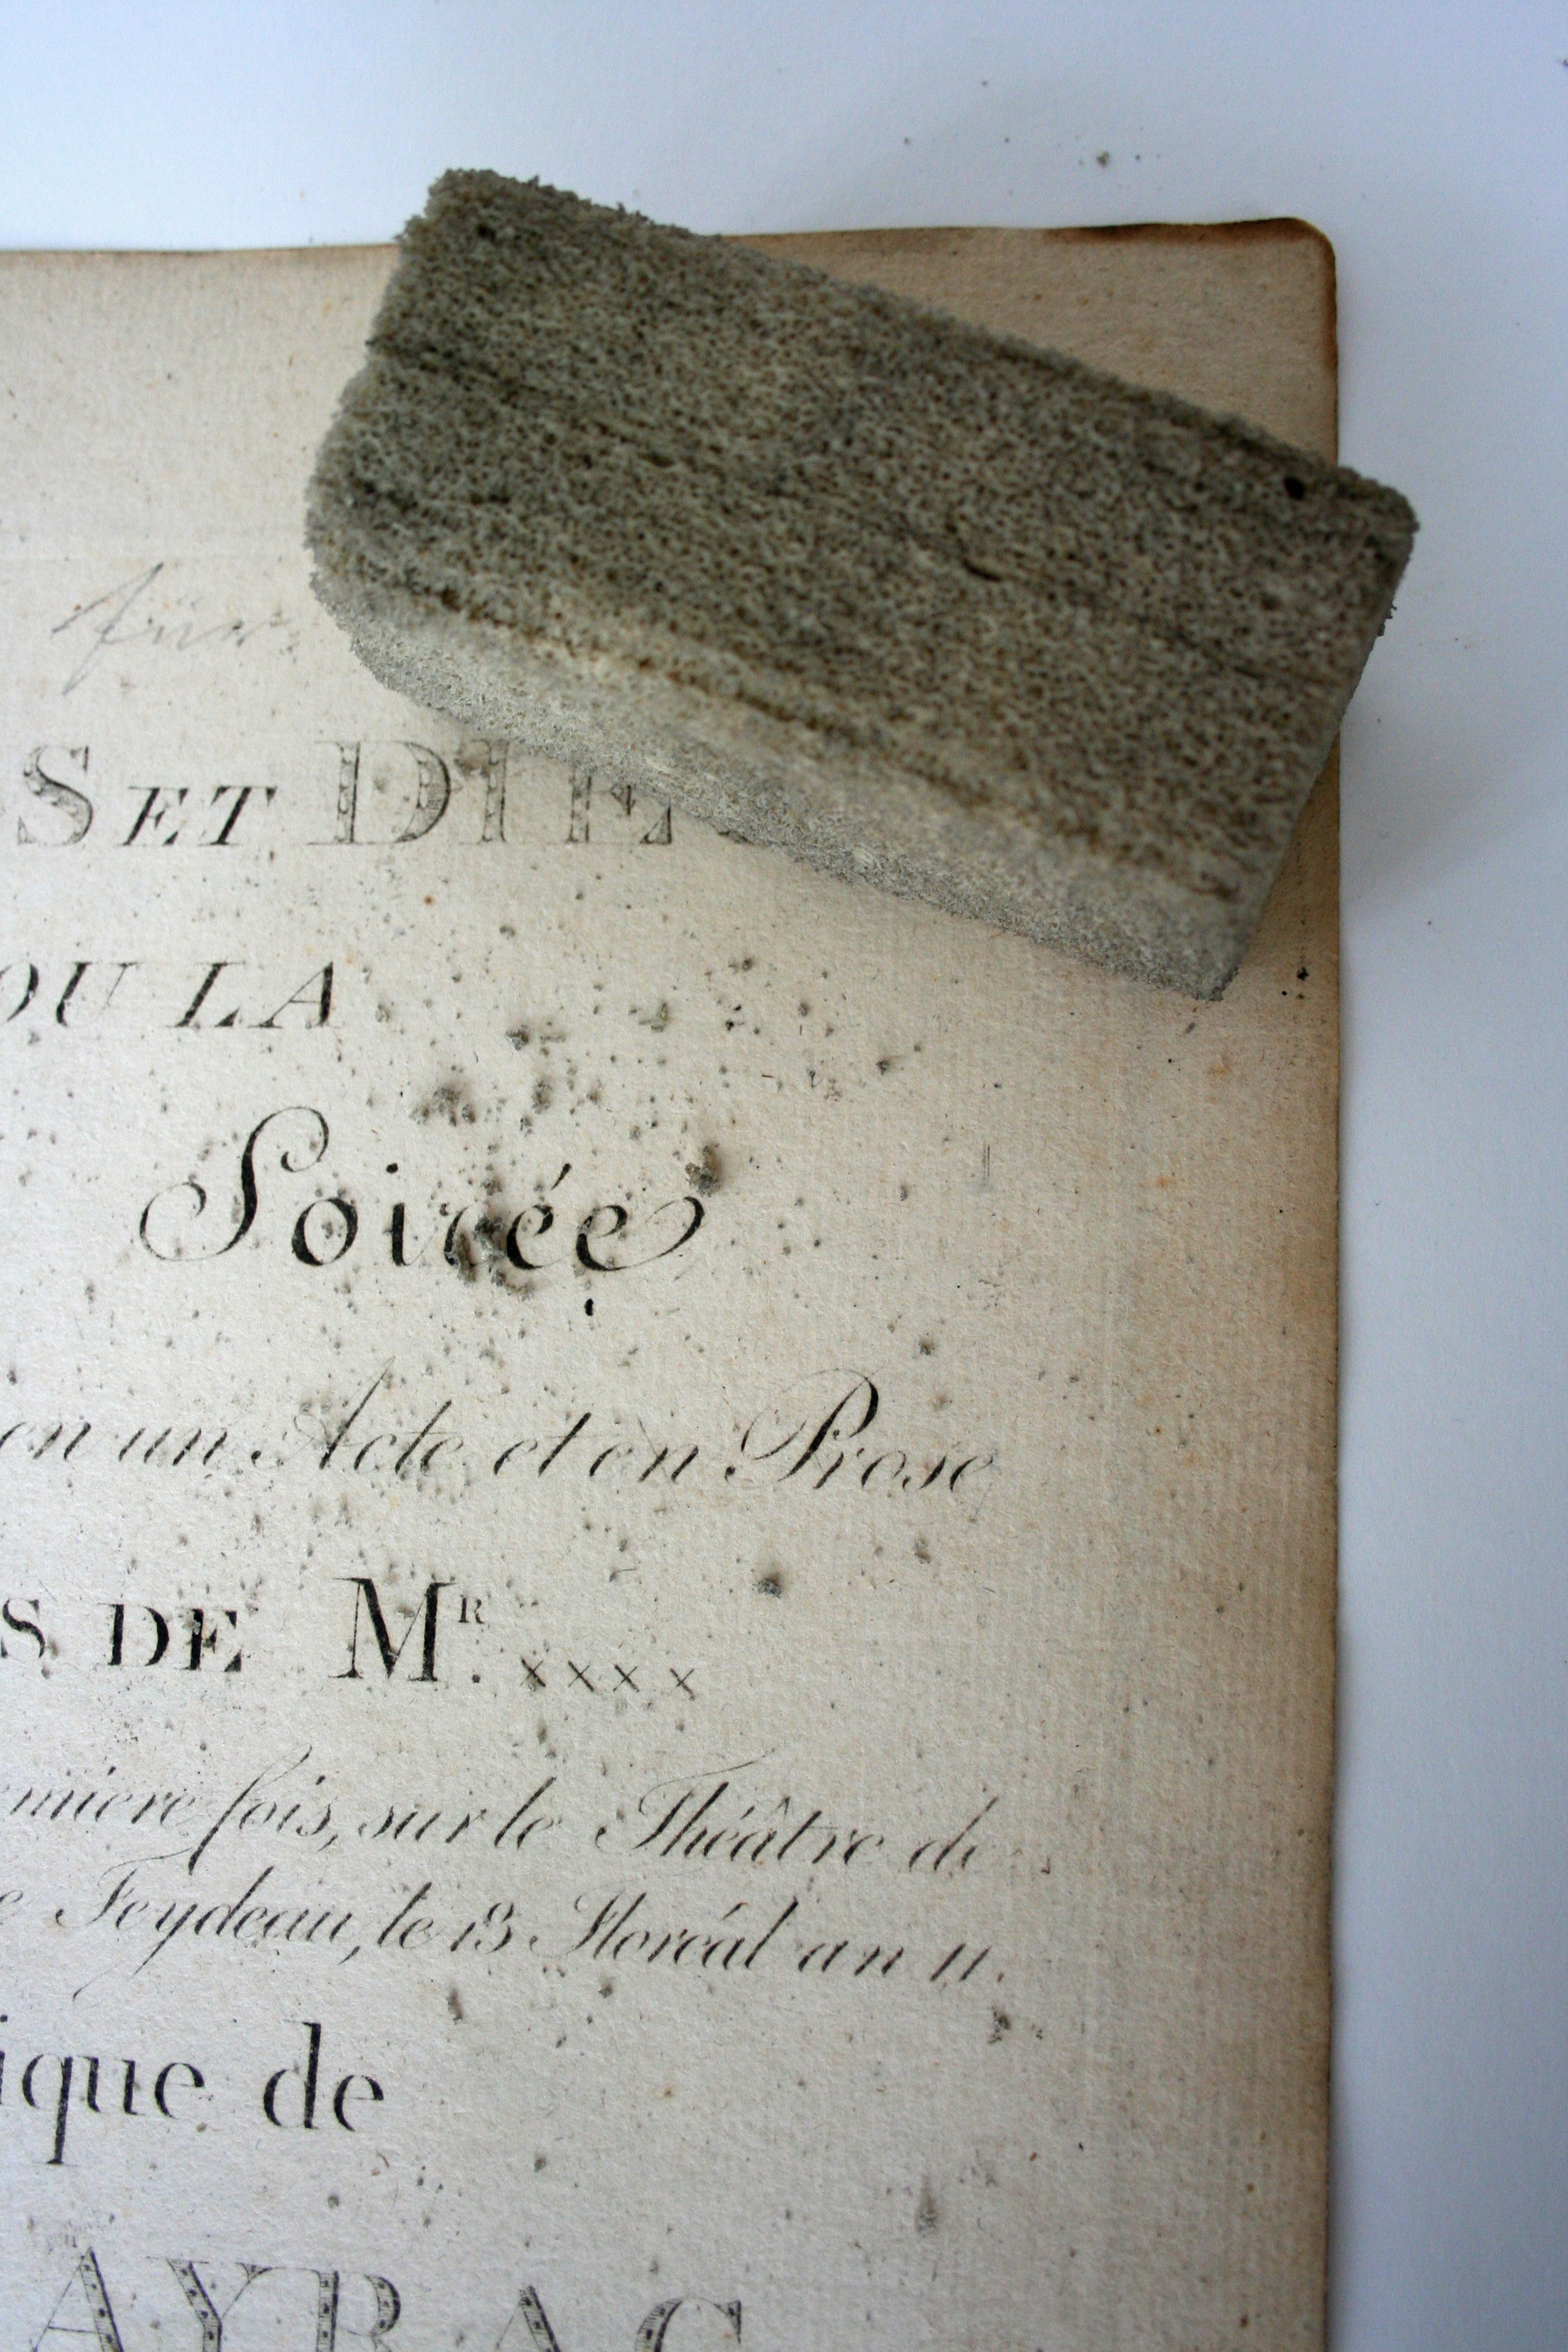 für
S ET DIE
OU LA
Soirée
en un Acte et en Prose
S DE MR. xxxx
emiere fois, sur le Théâtre de
e Feydeau, le 13 Floréal an 11.
ique de
AYRAC